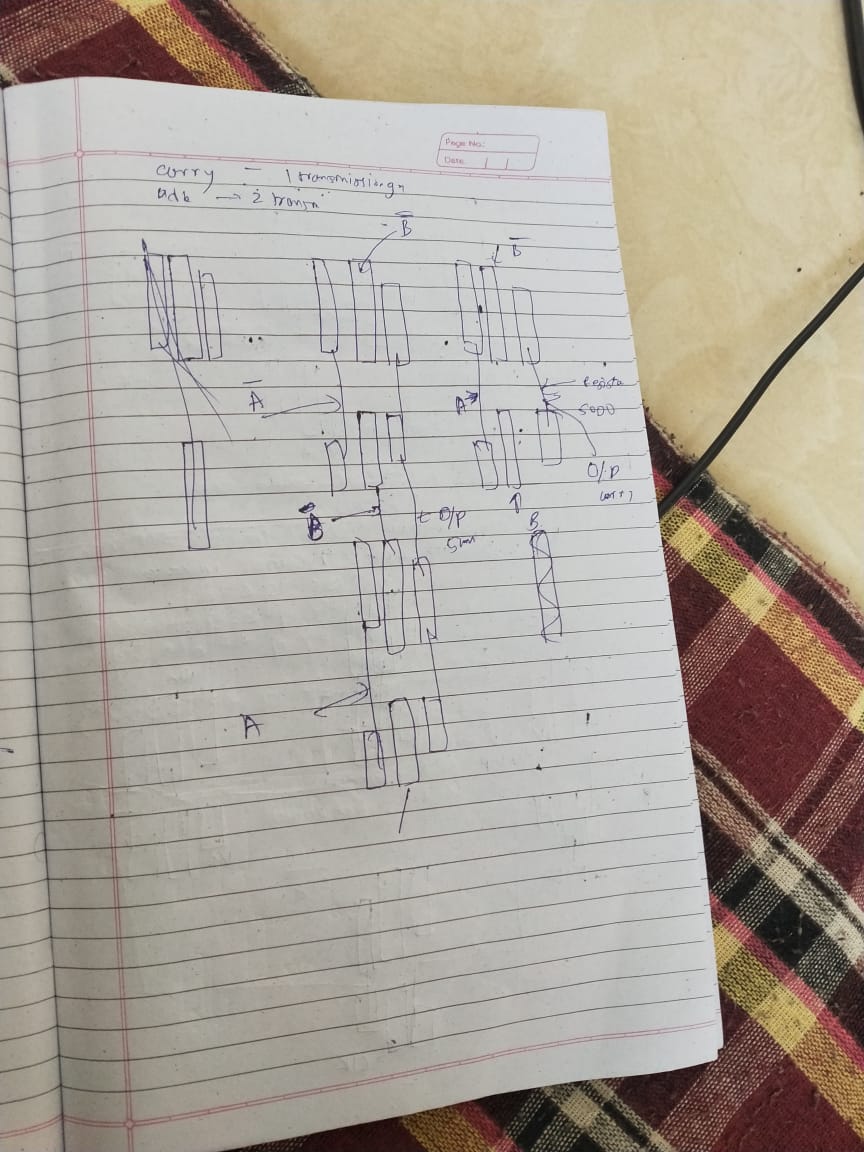 Page No:
Date
carry - 1 transmission gn
adb → 2 transn
B̅
B̅
A̅
A
Resista
5000
O/P
B
O/P
B
Sum
A